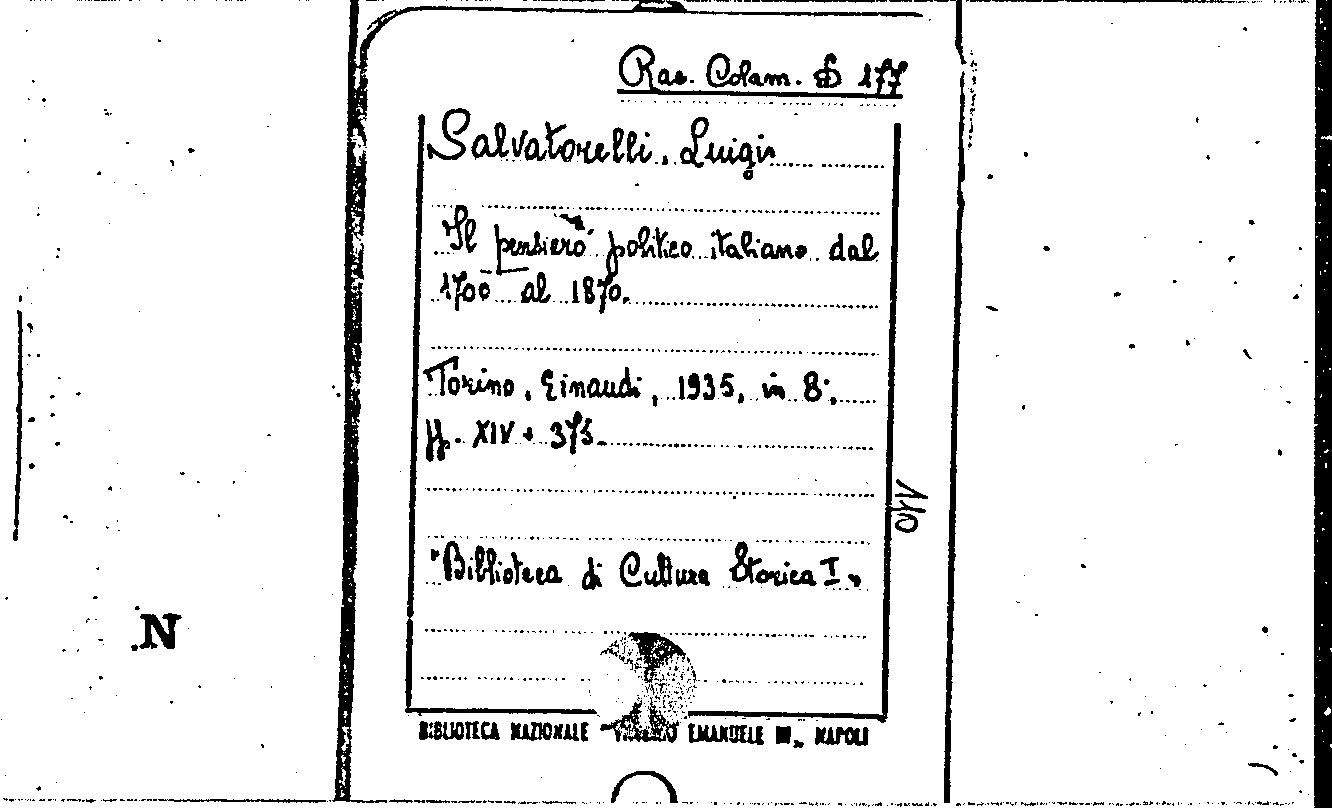 Rac. Colam. B 177
Salvatorelli, Luigi
Il pensiero politico italiano dal
1700 al 1870.
Torino, Einaudi, 1935, in 8°,
pp. XIV + 375.
"Biblioteca di Cultura Storica I"
110
N
BIBLIOTECA NAZIONALE EMANUELE III„ NAPOLI